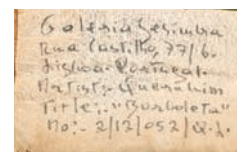 Galeria Sesimbra
Rua Castilho, 77/6.
Lisboa - Portugal.
Artist:- Querubim
Title:- "Borboleta"
No:- 2/12/052/Q.L.